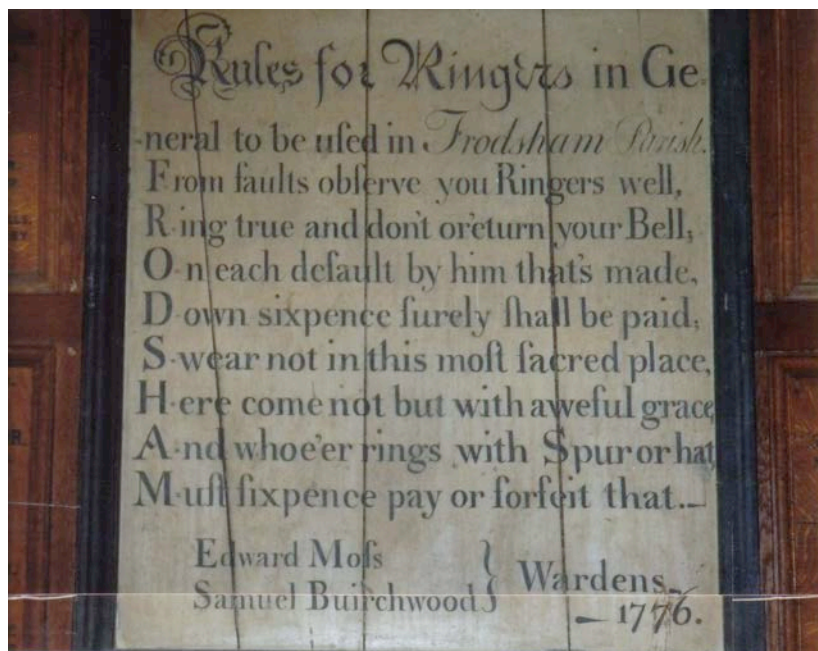 Rules for Ringers in Ge-
-neral to be uſed in Frodsham Parish.
From faults obſerve you Ringers well,
R·ing true and don't or'eturn your Bell;
O·n each default by him that's made,
D·own sixpence ſurely ſhall be paid;
S·wear not in this moſt ſacred place,
H·ere come not but with aweful grace,
A·nd whoe'er rings with Spur or hat,
M·uſt ſixpence pay or forfeit that.—
Edward Moſs
Samuel Buirchwood } Wardens
— 1776.